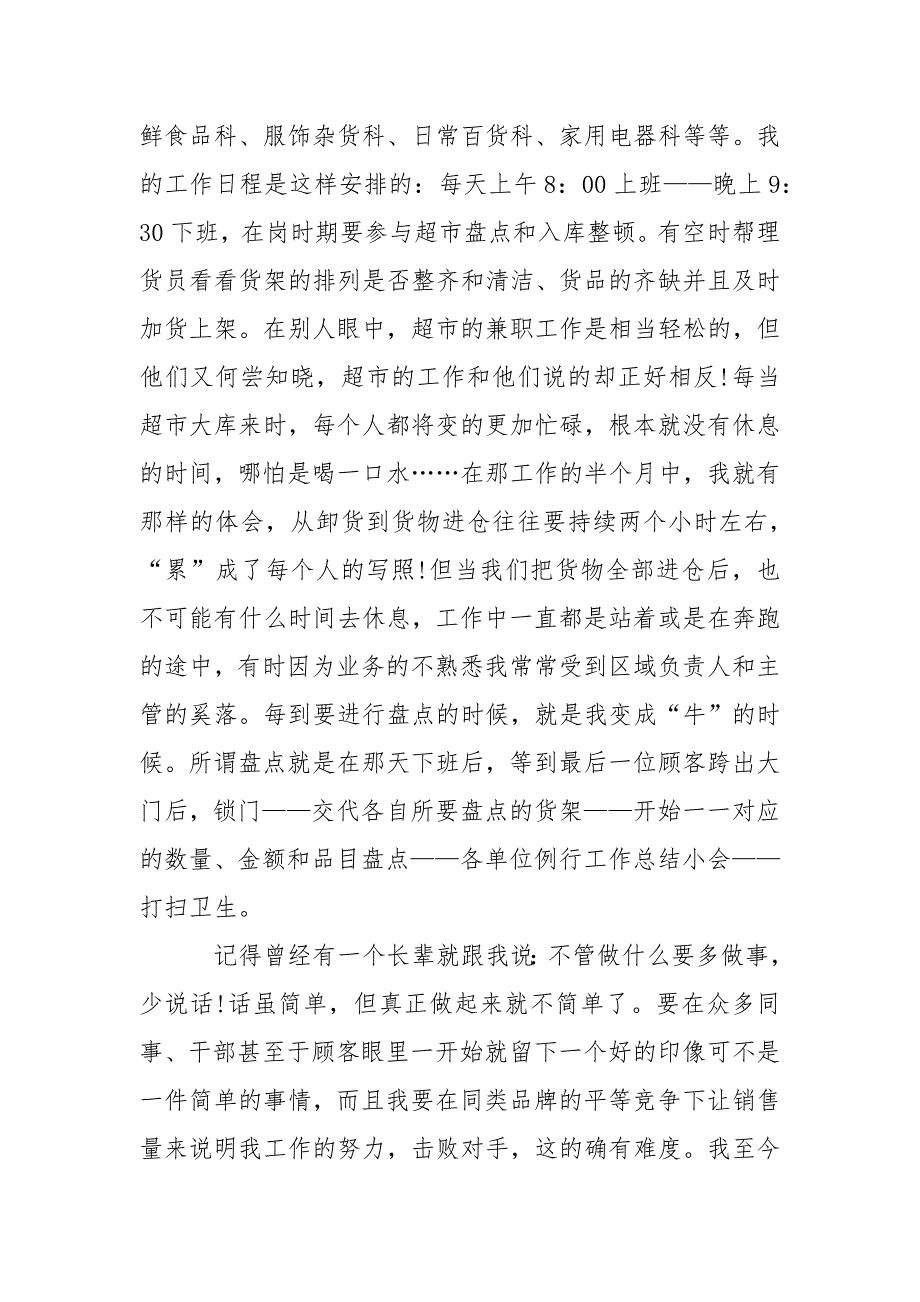 鲜食品科、服饰杂货科、日常百货科、家用电器科等等。我
的工作日程是这样安排的：每天上午8：00上班——晚上9：
30下班，在岗时期要参与超市盘点和入库整顿。有空时帮理
货员看看货架的排列是否整齐和清洁、货品的齐缺并且及时
加货上架。在别人眼中，超市的兼职工作是相当轻松的，但
他们又何尝知晓，超市的工作和他们说的却正好相反!每当
超市大库来时，每个人都将变的更加忙碌，根本就没有休息
的时间，哪怕是喝一口水……在那工作的半个月中，我就有
那样的体会，从卸货到货物进仓往往要持续两个小时左右，
“累”成了每个人的写照!但当我们把货物全部进仓后，也
不可能有什么时间去休息，工作中一直都是站着或是在奔跑
的途中，有时因为业务的不熟悉我常常受到区域负责人和主
管的奚落。每到要进行盘点的时候，就是我变成“牛”的时
候。所谓盘点就是在那天下班后，等到最后一位顾客跨出大
门后，锁门——交代各自所要盘点的货架——开始一一对应
的数量、金额和品目盘点——各单位例行工作总结小会——
打扫卫生。
记得曾经有一个长辈就跟我说：不管做什么要多做事，
少说话!话虽简单，但真正做起来就不简单了。要在众多同
事、干部甚至于顾客眼里一开始就留下一个好的印像可不是
一件简单的事情，而且我要在同类品牌的平等竞争下让销售
量来说明我工作的努力，击败对手，这的确有难度。我至今